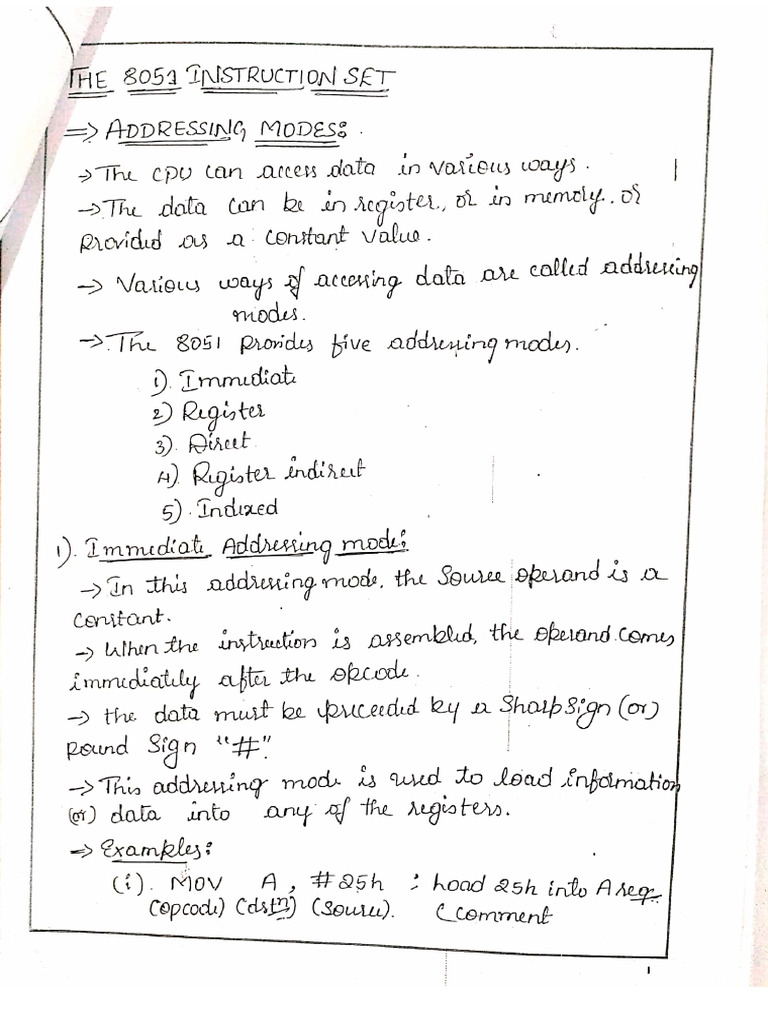 THE 8051 INSTRUCTION SET
=> ADDRESSING MODES:
-> The CPU can access data in various ways.
-> The data can be in register, or in memory. or
Provided as a constant value.
-> Various ways of accessing data are called addressing
modes.
-> The 8051 Provides five addressing modes.
1). Immediate
2) Register
3). Direct
4). Register indirect
5). Indexed
1). Immediate Addressing mode:
-> In this addressing mode, the Source operand is a
constant.
-> When the instruction is assembled, the operand comes
immediately after the opcode.
-> the data must be preceeded by a Sharp Sign (or)
Pound Sign "#".
-> This addressing mode is used to load information
(or) data into any of the registers.
=> Examples:
(i). MOV A, #25h ; Load 25h into A reg.
(opcode) (dstn) (Source). (comment
1